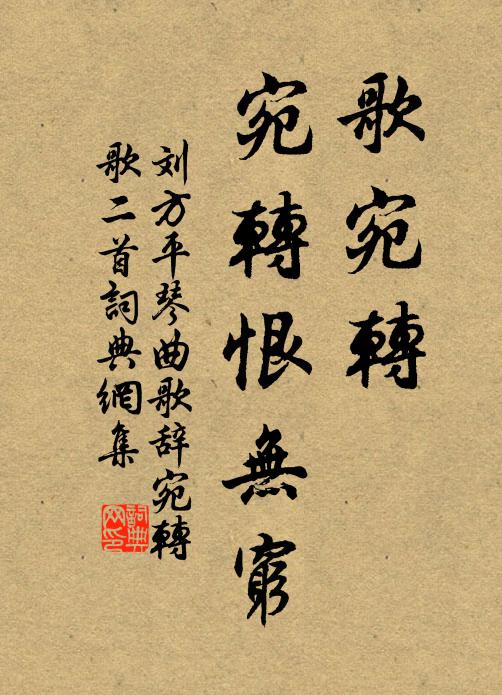 歌宛轉
宛轉恨無窮
刘方平琴曲歌辞宛轉
歌二首詞典網集